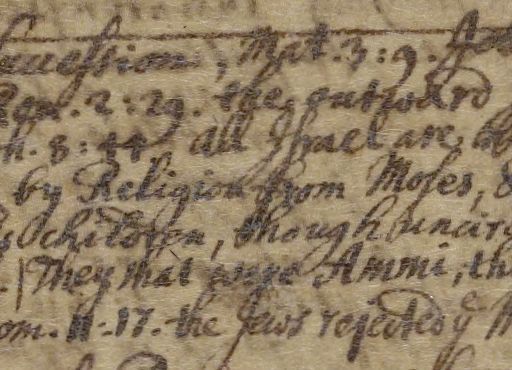 Succession, Mat. 3:9.
Rom. 2:29. the outward
h. 8:44 all Israel are
by Religion from Moses, &
children, though uncir
They that were Ammi, th
om. 11.17. the Jews rejected yᵉ